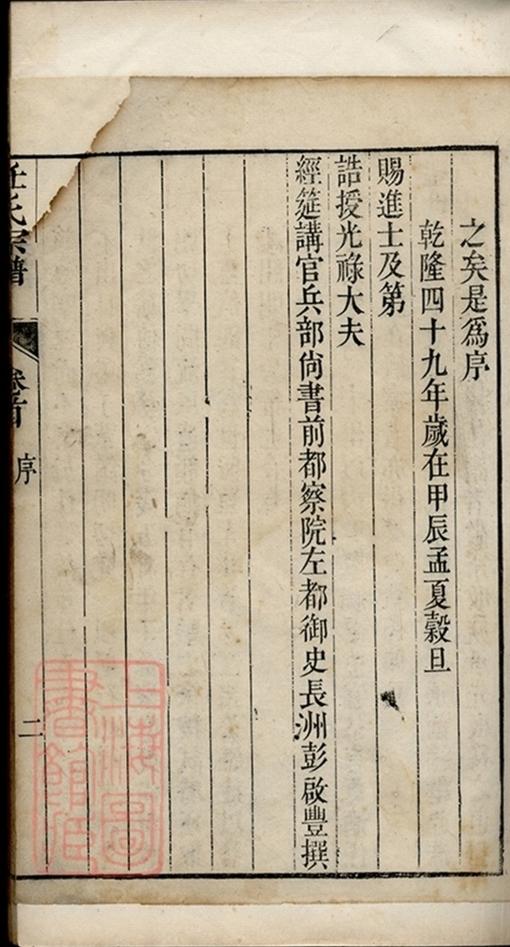 之矣是為序
乾隆四十九年歲在甲辰孟夏穀旦
賜進士及第
誥授光祿大夫
經筵講官兵部尙書前都察院左都御史長洲彭啟豐撰
任氏宗譜
卷首
序
二
上海圖書館藏